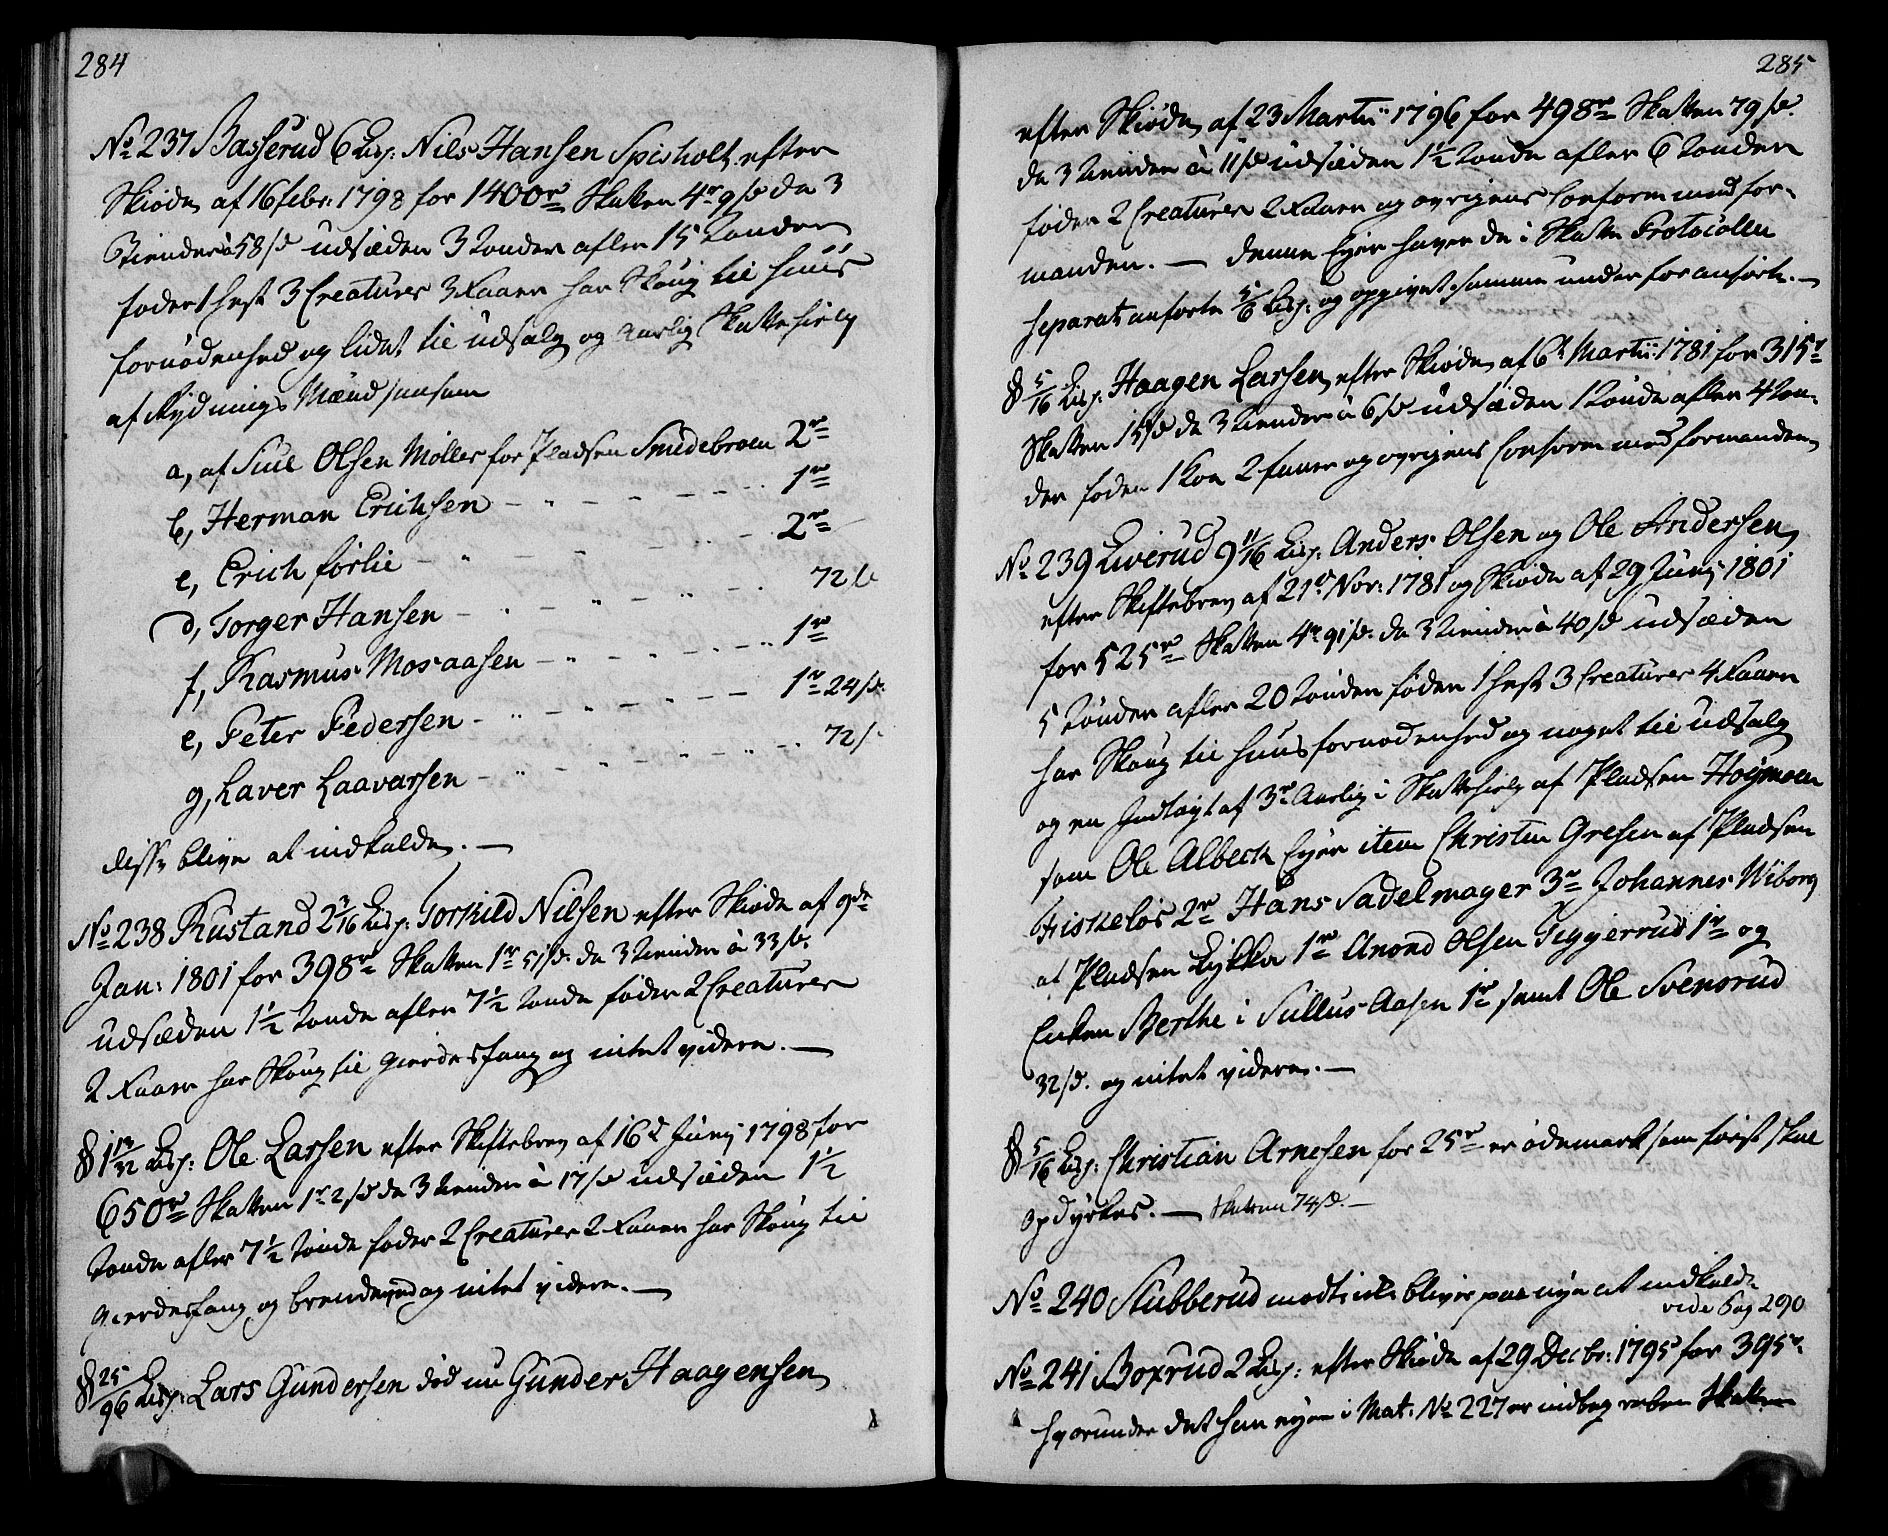 284
No 237 Basserud 6 Lisp: Nils Hansen Spisholt efter
Skiøde af 16 febr: 1798 for 1400 r Skatten 4 r 9 s de 3
Tiender à 58 s udsæden 3 Tønder afler 15 Tønder
føder 1 hest 3 Creaturer 3 Faarer har Skoug til huus
fornødenhed og lidet til udsalg og aarlig Skattehielp
af Rydnings Mænd saasom
a, af Siul Olsen Møller for Pladsen Smedebroen 2 r
b, Herman Erichsen 1 r
c, Erich førlie 2 r
d, Torger Hansen 72 s
f, Rasmus Mosaasen 1 r
e, Peter Pedersen 1 r 24 s
g, Laver Laavarsen 72 s
disse bliver at indkalde. —
No 238 Rustand 2 7/16 Lisp: Torkild Nilsen efter Skiøde af 9de
Jan: 1801 for 398 r Skatten 1 r 51 s de 3 Tiender à 33 s.
udsæden 1 1/2 Tønde afler 7 1/2 Tønde føder 2 Creaturer
2 Faarer har Skoug til gierdesfang og intet videre. —
§ 1 13/32 Lisp: Ole Larsen efter Skiftebrev af 16 d Junij 1798 for
650 r Skatten 1 r 2 s de 3 Tiender à 17 s udsæden 1 1/2
Tønde afler 7 1/2 Tønde føder 2 Creaturer 2 Faarer har Skoug til
gierdesfang og brendeved og intet videre. —
§ 25/96 Lisp: Lars Gundersen død nu Gunder Haagensen
285
efter Skiøde af 23 Martii 1796 for 498 r Skatten 79 s.
de 3 Tiender à 11 s udsæden 1 1/2 Tønde afler 6 Tønder
føder 2 Creaturer 2 Faarer og øvrigens Conform med for-
manden. — denne Eyer haver de i Skatte Protocollen
separat anførte 5/6 Lisp: og opgivet samme under foranførte. —
§ 5/16 Lisp: Haagen Larsen efter Skiøde af 6t Martii 1781 for 315 r
Skatten 15 s de 3 Tiender à 6 s udsæden 1 Tønde afler 4 Tøn-
der føder 1 Koe 2 faarer og øvrigens Conform med formanden
No 239 Liverud 9 11/16 Lisp: Anders Olsen og Ole Andersen
efter Skiftebrev af 21 d Nov: 1781 og Skiøde af 29 Junij 1801
for 525 r Skatten 4 r 91 s. de 3 Tiender à 40 s udsæden
5 Tønder afler 20 Tønder føder 1 hest 3 Creaturer 4 Faarer
har Skoug til huusfornødenhed og noget til udsalg
og en Indtægt af 3 r Aarlig i Skattehielp af Pladsen Høymoen
som Ole Albech Eyer item Christen Gresen af Pladsen
Fiskeløs 2 r Hans Sadelmager 3 r Johannes Wiborg
at Pladsen Lykka 1 r Anond Olsen Teggerrud 1 r og
Enken Berthe i Sullus-Aasen 1 r samt Ole Svensrud
32 s. og intet videre. —
§ 5/16 Lisp: Christian Arnesen for 25 r er ødemark som først skal
opdyrkes. — Skatten 74 s. —
No 240 Stubberud modtiels bliver paa nye at indkalde
vide Pag 290
No 241 Boxrud 2 Lisp: efter Skiøde af 29 Decbr: 1795 for 395 r
hvorunder det han eyer i Mat: No 227 er indbegreben Skatten